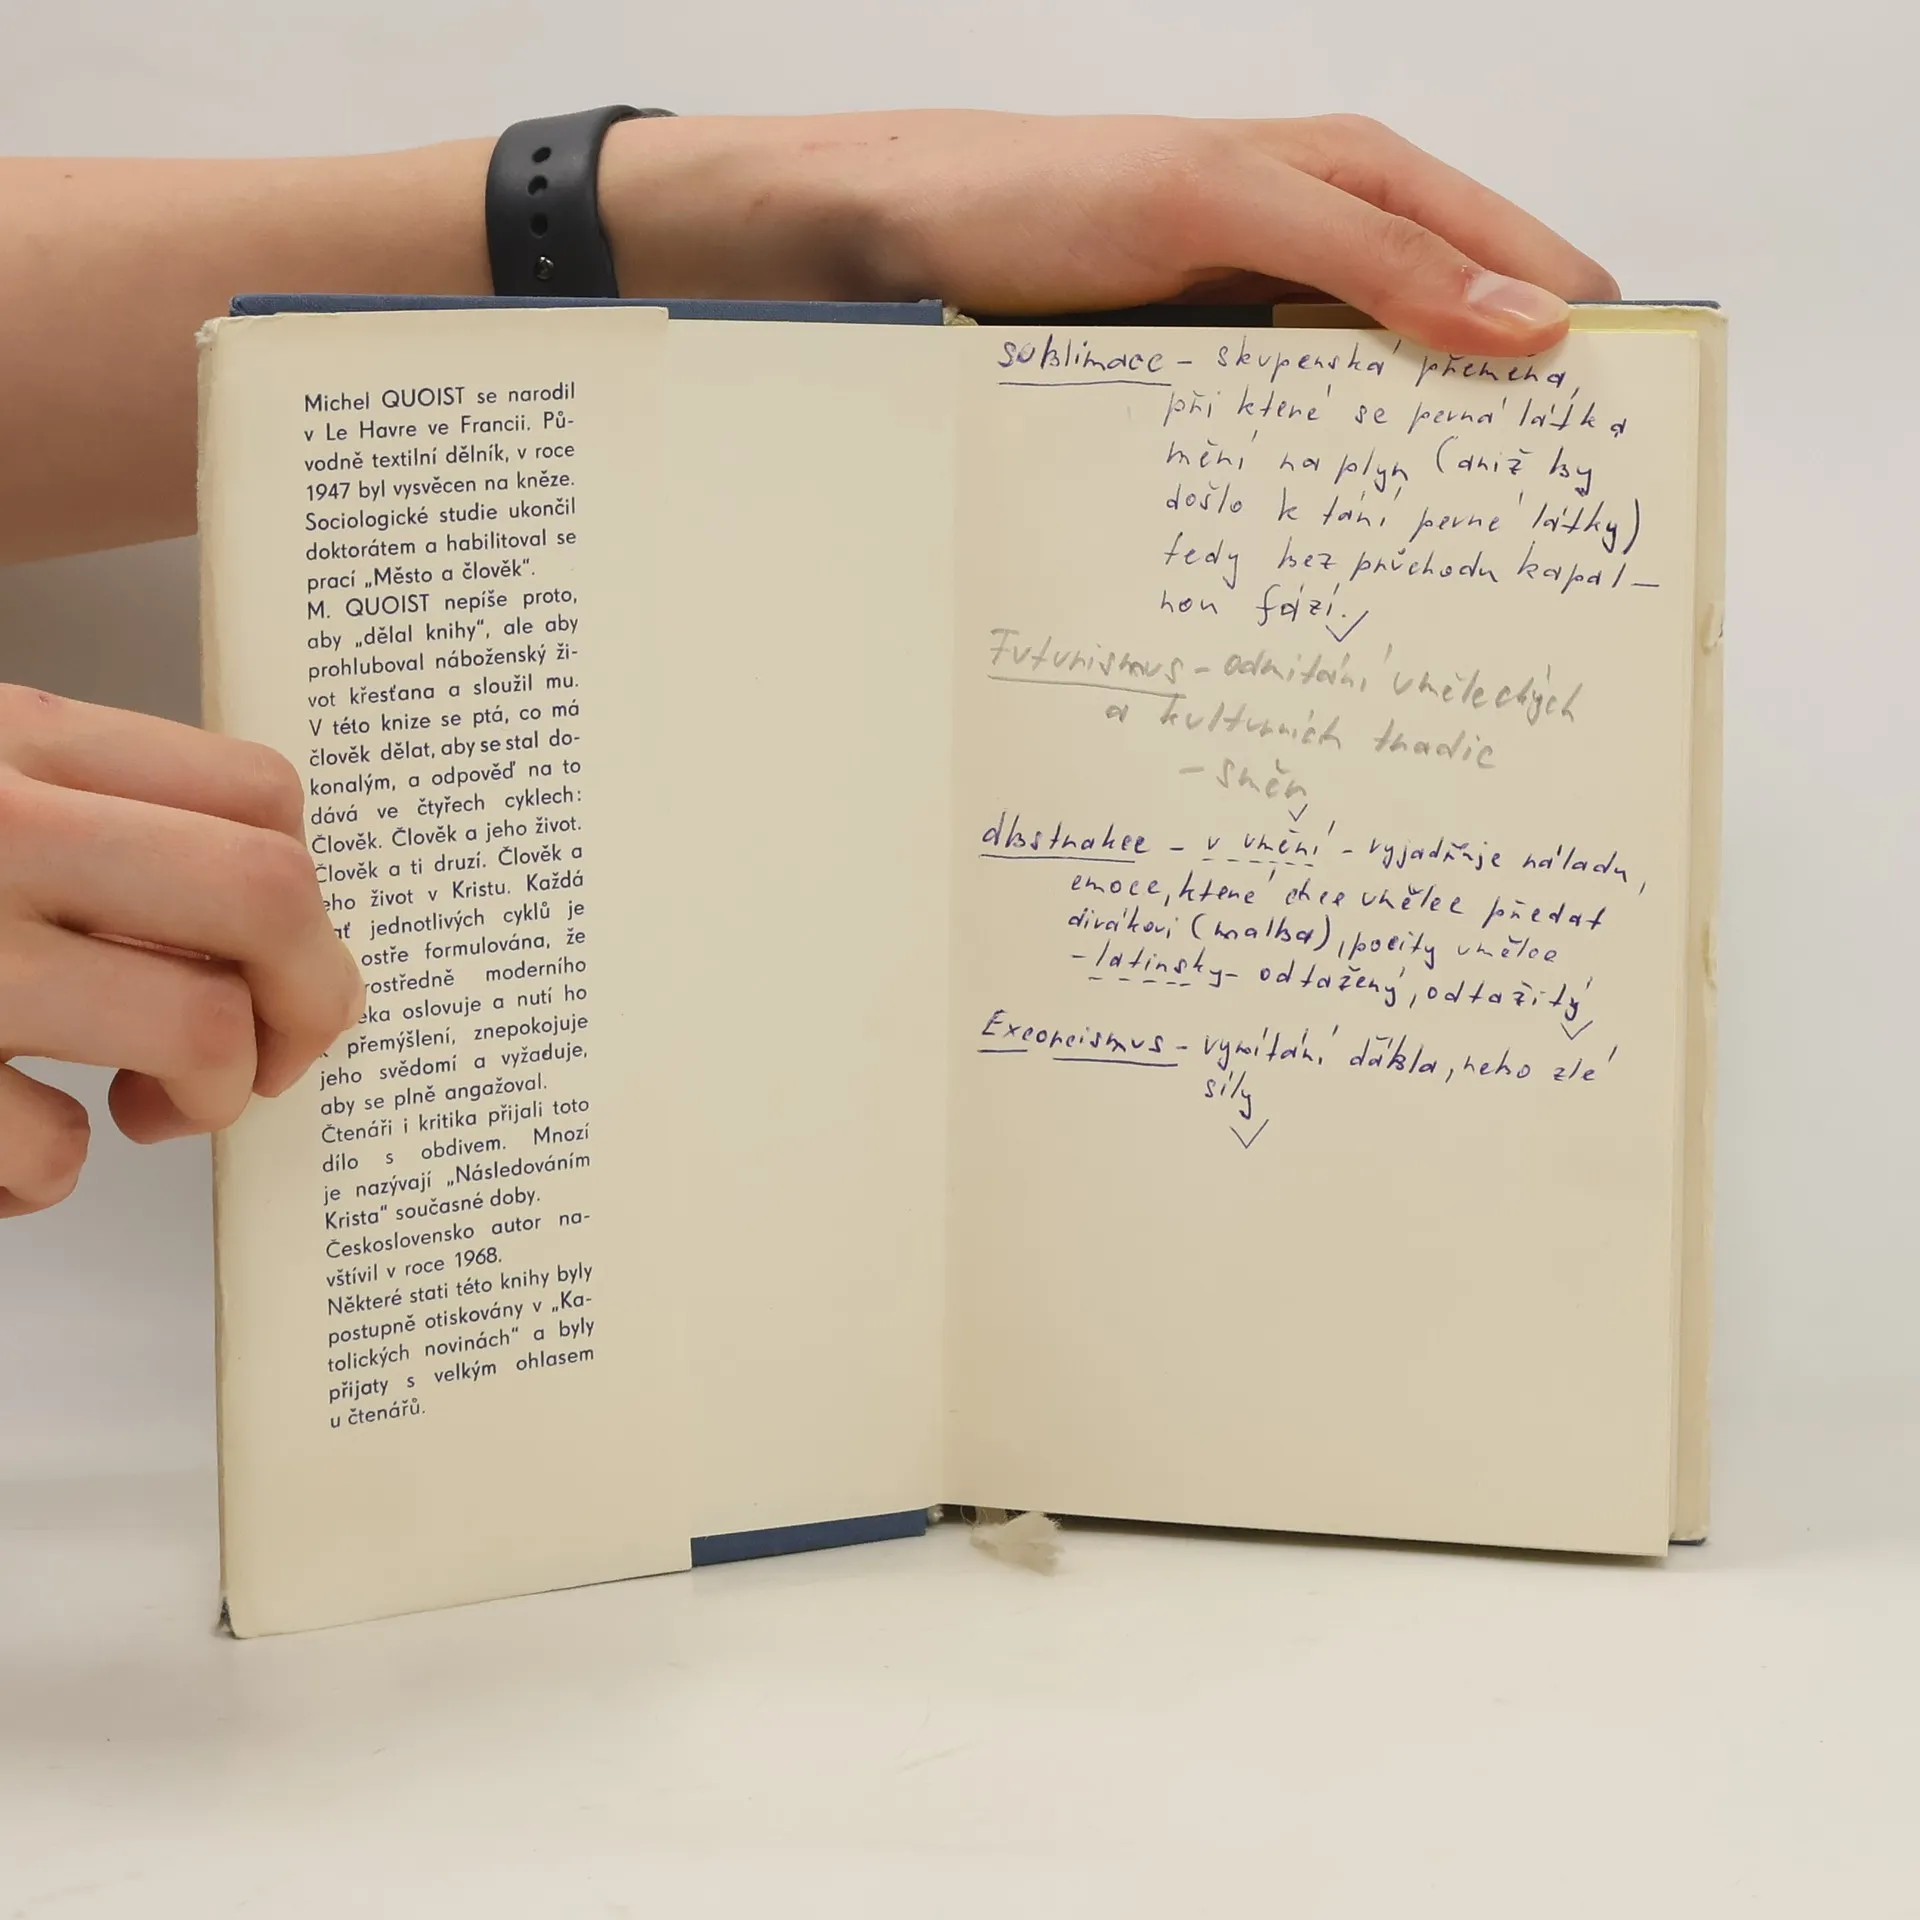 Michel QUOIST se narodil
v Le Havre ve Francii. Pů-
vodně textilní dělník, v roce
1947 byl vysvěcen na kněze.
Sociologické studie ukončil
doktorátem a habilitoval se
prací „Město a člověk“.
M. QUOIST nepíše proto,
aby „dělal knihy“, ale aby
prohluboval náboženský ži-
vot křesťana a sloužil mu.
V této knize se ptá, co má
člověk dělat, aby se stal do-
konalým, a odpověď na to
dává ve čtyřech cyklech:
Člověk. Člověk a jeho život.
Člověk a ti druzí. Člověk a
eho život v Kristu. Každá
ať jednotlivých cyklů je
ostře formulována, že
rostředně moderního
eka oslovuje a nutí ho
k přemýšlení, znepokojuje
jeho svědomí a vyžaduje,
aby se plně angažoval.
Čtenáři i kritika přijali toto
dílo s obdivem. Mnozí
je nazývají „Následováním
Krista“ současné doby.
Československo autor na-
vštívil v roce 1968.
Některé stati této knihy byly
postupně otiskovány v „Ka-
tolických novinách“ a byly
přijaty s velkým ohlasem
u čtenářů.
sublimace - skupenská přeměna,
při které se pevná látka
mění na plyn (aniž by
došlo k tání pevné látky)
tedy bez průchodu kapal-
nou fází.
Futurismus - odmítání uměleckých
a kulturních tradic
- směr
abstrakce - v umění - vyjadřuje náladu,
emoce, které chce umělec předat
divákovi (malba), pocity umělce
- latinsky - odtažený, odtažitý
Exorcismus - vymítání ďábla, nebo zlé
síly